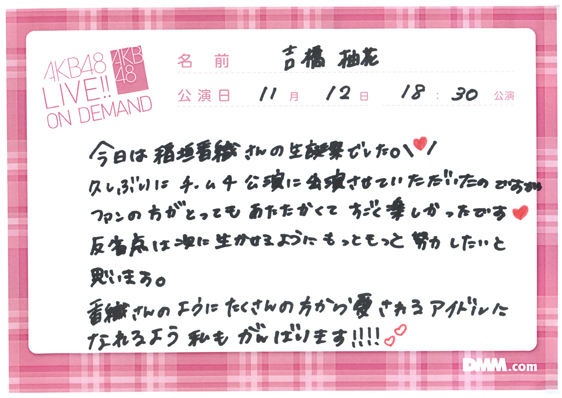 AKB48
LIVE!!
ON DEMAND
AKB
48
名 前 吉橋 柚花
公演日 11月 12日 18:30公演
今日は稲垣香織さんの生誕祭でした。\♥/
久しぶりにチームA公演に出演させていただいたのですが
ファンの方がとってもあたたかくてすごく楽しかったです♥
反省点は次に生かせるようにもっともっと努力したいと
思います。
香織さんのようにたくさんの方から愛されるアイドルに
なれるよう私もがんばります!!!!♡♡
DMM.com